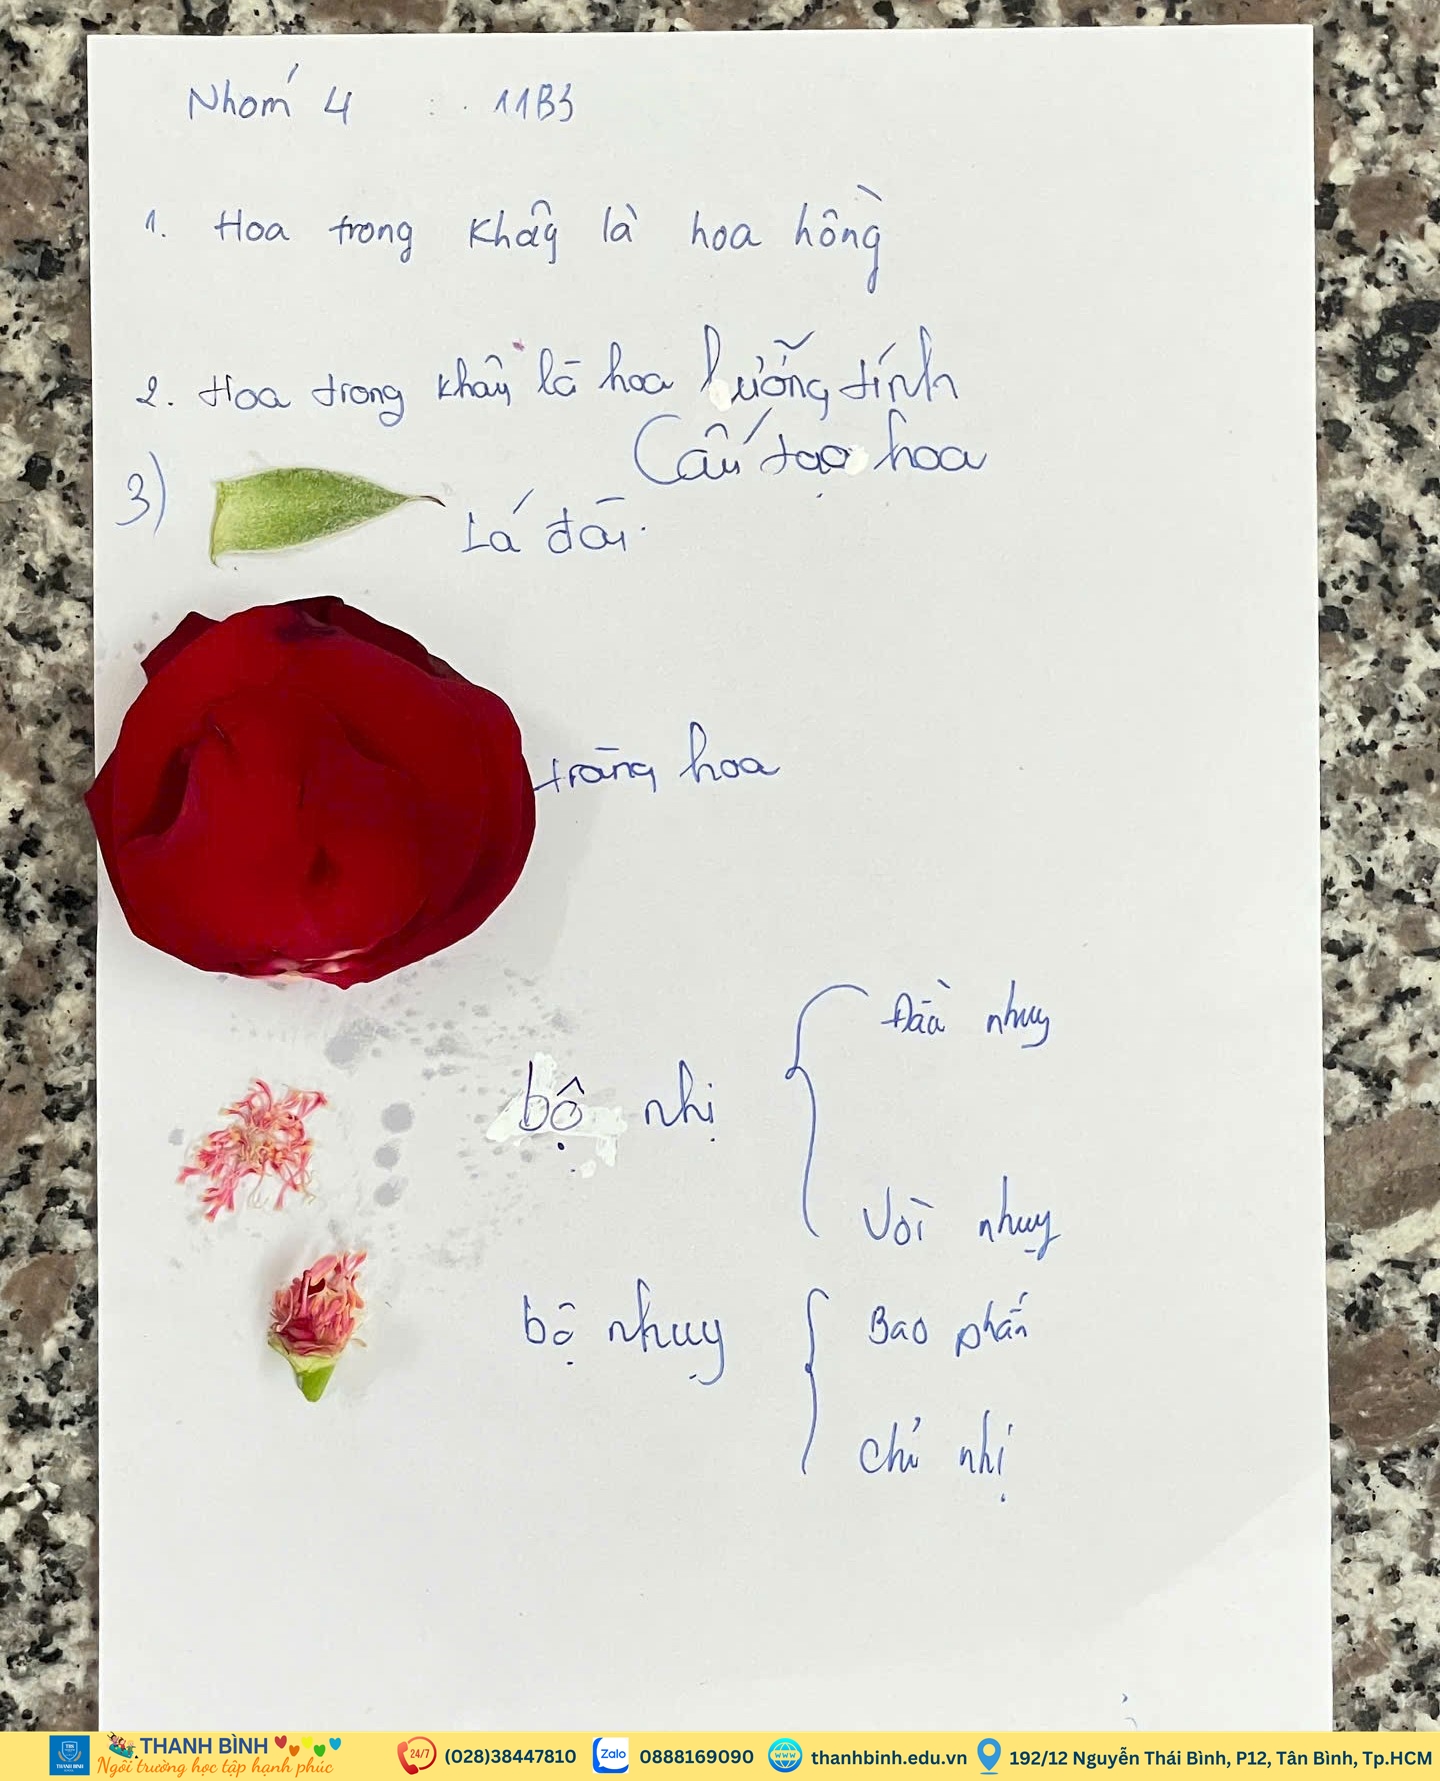 Nhóm 4 : 11B3
1. Hoa trong khây là hoa hồng
2. Hoa trong khây là hoa lưỡng tính
Cấu tạo hoa
3) Lá đài
tràng hoa
bộ nhị
Đầu nhuỵ
Vòi nhuỵ
bộ nhuỵ
Bao phấn
chỉ nhị
THANH BÌNH
Ngôi trường học tập hạnh phúc
24/7 (028)38447810 Zalo 0888169090 thanhbinh.edu.vn 192/12 Nguyễn Thái Bình, P12, Tân Bình, Tp.HCM